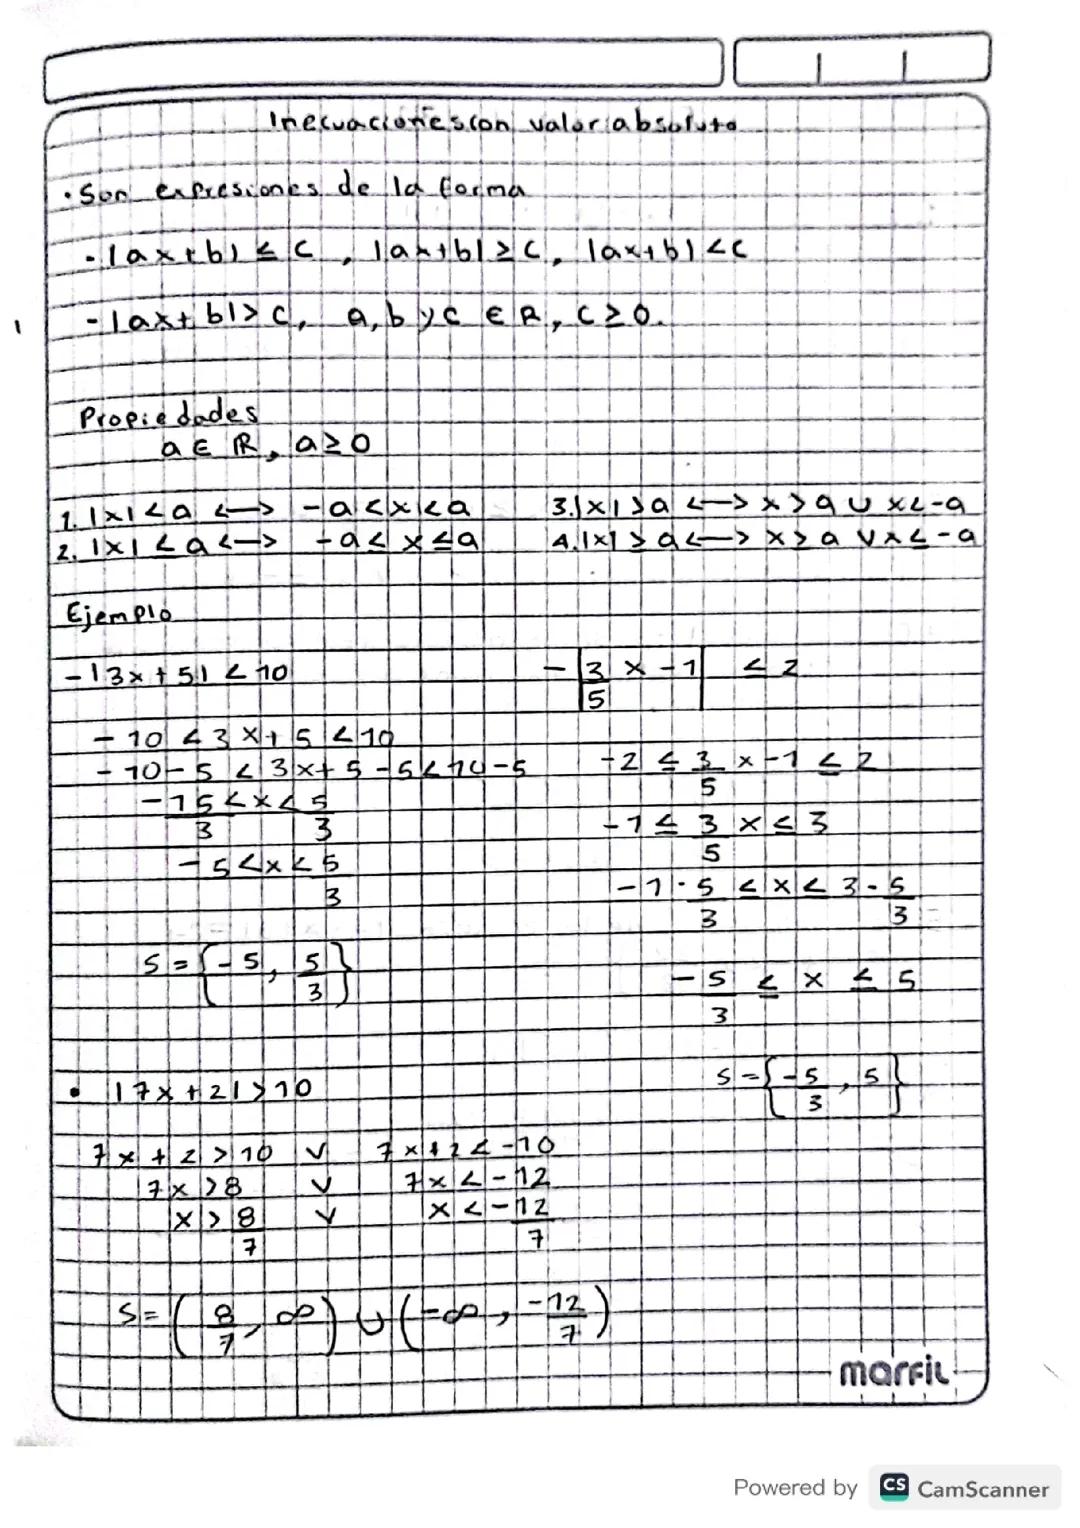 Inecuaciones con valor absoluto
• Son expresiones de la forma
- |ax+b| ≤ c, |ax+b| ≥ c, |ax+b| < c
- |ax+b| > c, a, b y c ∈ R, c ≥ 0.
Propiedades
a ∈ ℝ, a ≥ 0
1. |x| < a ⟷ -a < x < a
2. |x| ≤ a ⟷ -a ≤ x ≤ a
3. |x| > a ⟷ x > a ∪ x < -a
4. |x| ≥ a ⟷ x ≥ a ∨ x ≤ -a
Ejemplo
- |3x + 5| < 10
- 10 < 3x + 5 < 10
- 10 - 5 < 3x + 5 - 5 < 10 - 5
-15/3 < x < 5/3
- 5 < x < 5/3
S = {-5, 5/3}
- |3/5 x - 1| ≤ 2
-2 ≤ 3/5 x - 1 ≤ 2
-1 ≤ 3/5 x ≤ 3
-1 · 5/3 ≤ x ≤ 3 · 5/3
-5/3 ≤ x ≤ 5
S = {-5/3, 5}
• |7x + 2| > 10
7x + 2 > 10 ∨ 7x + 2 < -10
7x > 8 ∨ 7x < -12
x > 8/7 ∨ x < -12/7
S = (8/7, ∞) ∪ (-∞, -12/7)
marfil
Powered by CS CamScanner